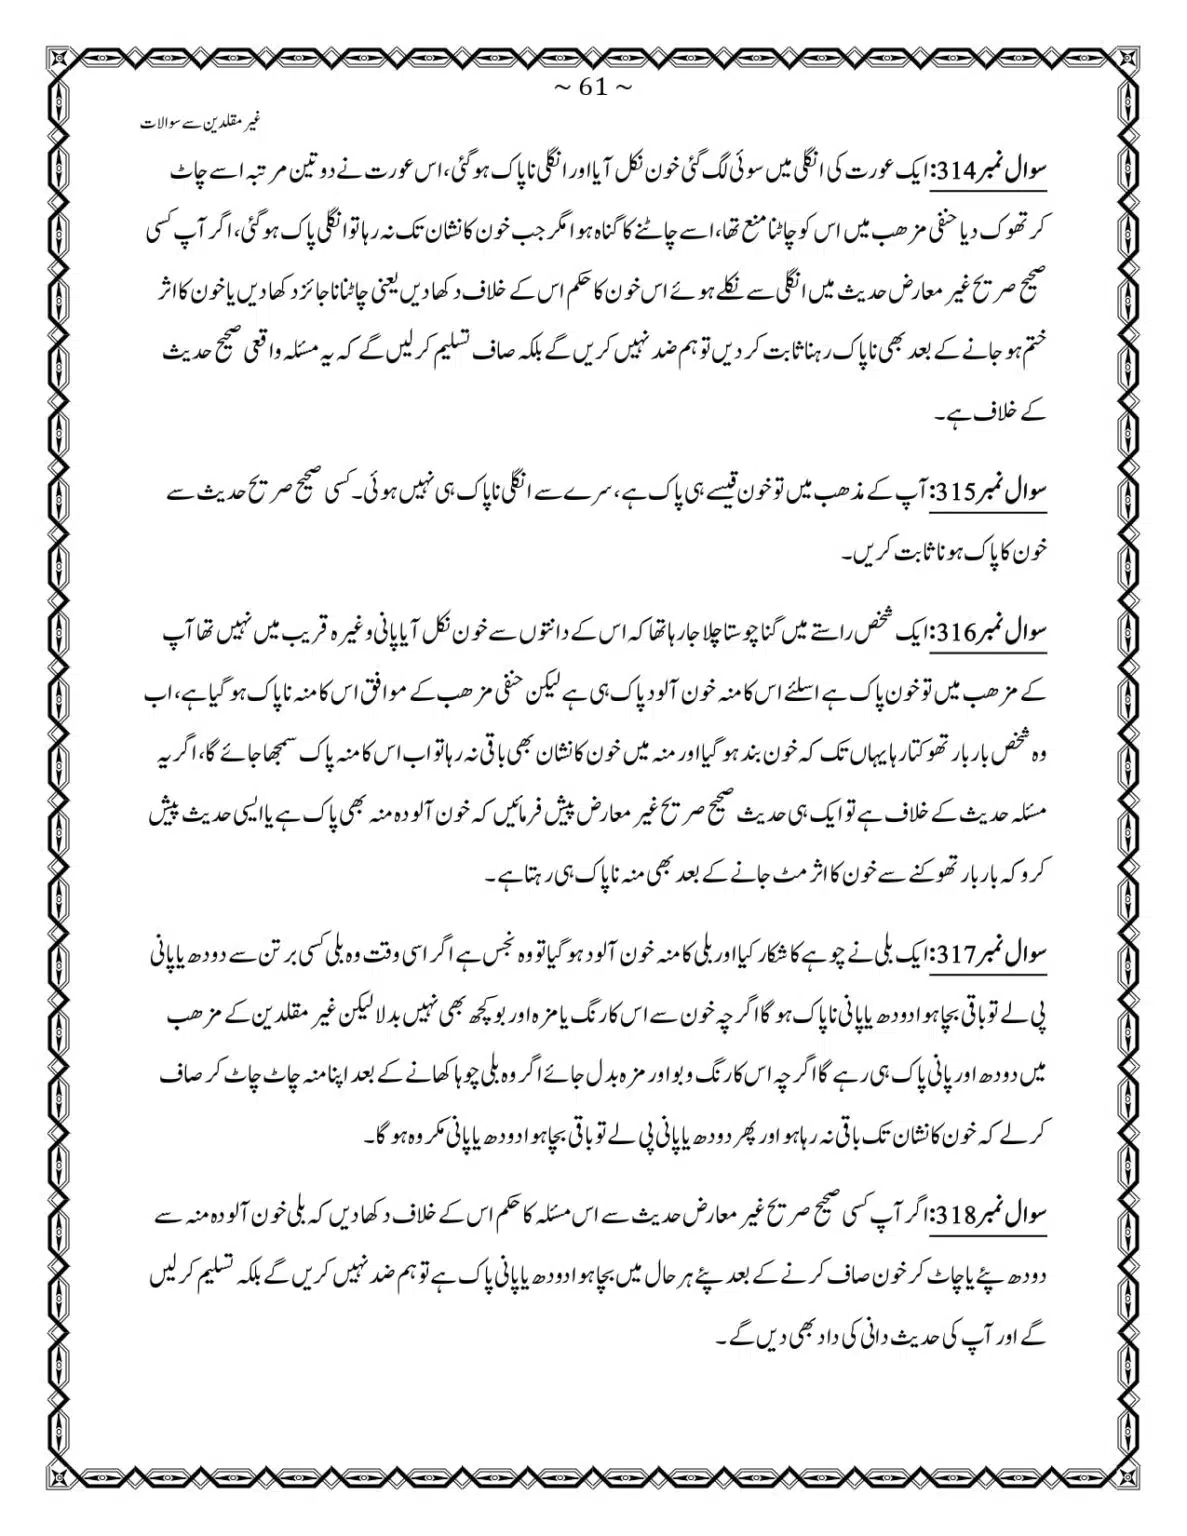 ~ 61 ~
غیر مقلدین سے سوالات
سوال نمبر314: ایک عورت کی انگلی میں سوئی لگ گئی خون نکل آیا اور انگلی ناپاک ہو گئی، اس عورت نے دو تین مرتبہ اسے چاٹ
کر تھوک دیا حنفی مزھب میں اس کو چاٹنا منع تھا، اسے چاٹنے کا گناہ ہوا مگر جب خون کا نشان تک نہ رہا تو انگلی پاک ہو گئی، اگر آپ کسی
صحیح صریح غیر معارض حدیث میں انگلی سے نکلے ہوئے اس خون کا حکم اس کے خلاف دکھا دیں یعنی چاٹنا ناجائز دکھا دیں یا خون کا اثر
ختم ہو جانے کے بعد بھی ناپاک رہنا ثابت کر دیں تو ہم ضد نہیں کریں گے بلکہ صاف تسلیم کر لیں گے کہ یہ مسئلہ واقعی صحیح حدیث
کے خلاف ہے۔
سوال نمبر315: آپ کے مذھب میں تو خون قیسے ہی پاک ہے، سرے سے انگلی ناپاک ہی نہیں ہوئی۔ کسی صحیح صریح حدیث سے
خون کا پاک ہونا ثابت کریں۔
سوال نمبر316: ایک شخص راستے میں گنا چوستا چلا جا رہا تھا کہ اس کے دانتوں سے خون نکل آیا پانی وغیرہ قریب میں نہیں تھا آپ
کے مزھب میں تو خون پاک ہے اسلئے اس کا منہ خون آلود پاک ہی ہے لیکن حنفی مزھب کے موافق اس کا منہ ناپاک ہو گیا ہے، اب
وہ شخص بار بار تھوکتا رہا یہاں تک کہ خون بند ہو گیا اور منہ میں خون کا نشان بھی باقی نہ رہا تو اب اس کا منہ پاک سمجھا جائے گا، اگر یہ
مسئلہ حدیث کے خلاف ہے تو ایک ہی حدیث صحیح صریح غیر معارض پیش فرمائیں کہ خون آلودہ منہ بھی پاک ہے یا ایسی حدیث پیش
کرو کہ بار بار تھوکنے سے خون کا اثر مٹ جانے کے بعد بھی منہ ناپاک ہی رہتا ہے۔
سوال نمبر317: ایک بلی نے چوہے کا شکار کیا اور بلی کا منہ خون آلود ہو گیا تو وہ نجس ہے اگر اسی وقت وہ بلی کسی برتن سے دودھ یا پانی
پی لے تو باقی بچا ہوا دودھ یا پانی ناپاک ہو گا اگرچہ خون سے اس کا رنگ یا مزہ اور بو کچھ بھی نہیں بدلا لیکن غیر مقلدین کے مزھب
میں دودھ اور پانی پاک ہی رہے گا اگرچہ اس کا رنگ و بو اور مزہ بدل جائے اگر وہ بلی چوہا کھانے کے بعد اپنا منہ چاٹ چاٹ کر صاف
کر لے کہ خون کا نشان تک باقی نہ رہا ہو اور پھر دودھ یا پانی پی لے تو باقی بچا ہوا دودھ یا پانی مکروہ ہو گا۔
سوال نمبر318: اگر آپ کسی صحیح صریح غیر معارض حدیث سے اس مسئلہ کا حکم اس کے خلاف دکھا دیں کہ بلی خون آلودہ منہ سے
دودھ پئے یا چاٹ کر خون صاف کرنے کے بعد پئے ہر حال میں بچا ہوا دودھ یا پانی پاک ہے تو ہم ضد نہیں کریں گے بلکہ تسلیم کر لیں
گے اور آپ کی حدیث دانی کی داد بھی دیں گے۔